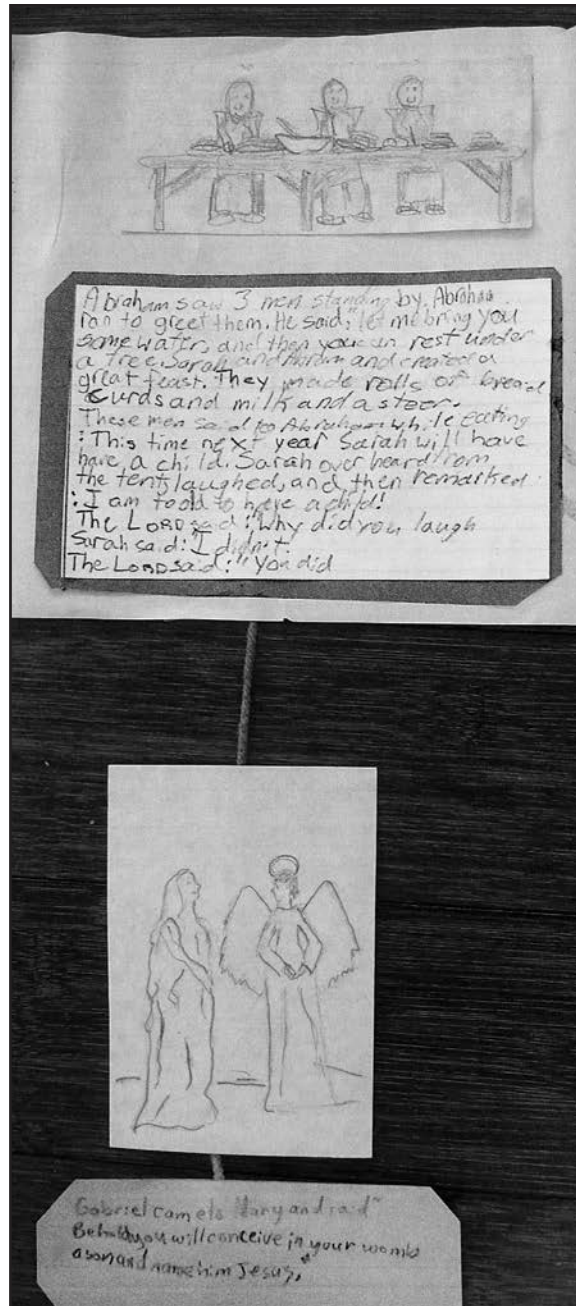 Abraham saw 3 men standing by. Abraham
ran to greet them. He said, "let me bring you
some water, and then you can rest under
a tree. Sarah and and created a
great feast. They made rolls of bread
curds and milk and a steer.
These men said to Abraham while eating
: This time next year Sarah will have
have a child. Sarah over heard from
the tent, laughed, and then remarked
: I am to old to have a child!
The LORD said: "Why did you laugh
Sarah said: "I didn't.
The LORD said: "You did
Gabriel came to Mary and said "
Behold you will conceive in your womb
a son and name him Jesus."